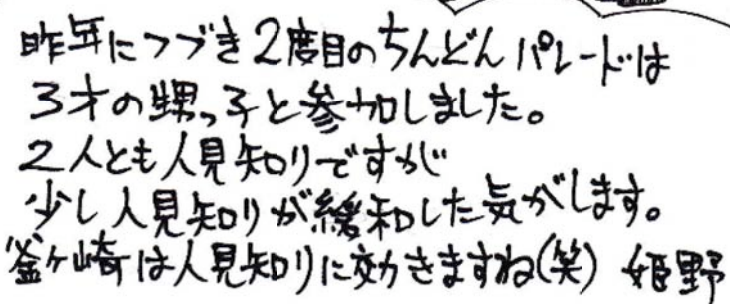 昨年につづき2度目のちんどんパレードは
3才の甥っ子と参加しました。
2人とも人見知りですが
少し人見知りが緩和した気がします。
釜ヶ崎は人見知りに効きますね(笑) 姫野